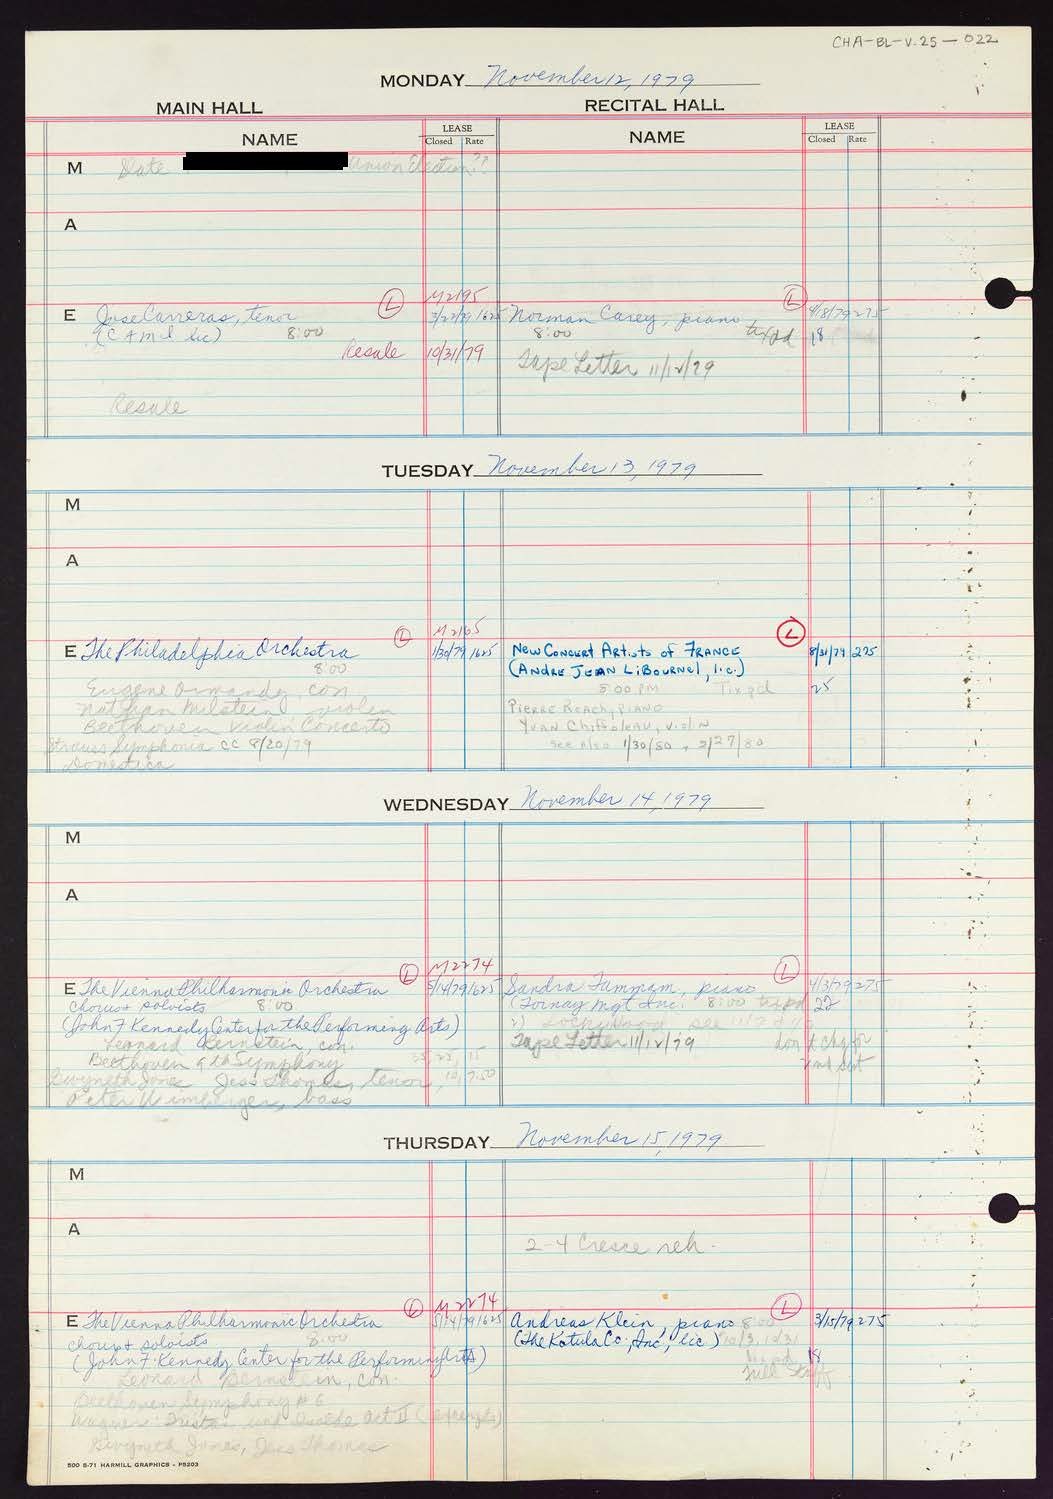 CHA-BL-V.25-022
MONDAY November 12, 1979
MAIN HALL RECITAL HALL
NAME LEASE Closed Rate NAME LEASE Closed Rate
M Date Union Election??
A
(L) M2195 (L)
E Jose Carreras, tenor 3/22/79 1625 Norman Carey, piano 4/18/79 275
(CAMI lic) 8:00 8:00 txpd 18
Resale 10/31/79 Tape Letter 11/12/79
Resale
TUESDAY November 13, 1979
M
A
(L) M2165 (L)
E The Philadelphia Orchestra 1/30/79 1625 New Concert Artists of France 8/31/79 275
8:00 (Andre Jean Libournel, lic.)
Eugene Ormandy, con 8:00 PM Tix pd 25
Nathan Milstein violin Pierre Reach, piano
Beethoven Violin Concerto Yvan Chiffoleau, violin
Strauss Symphonia CC 8/20/79 see also 1/30/80 + 2/27/80
Domestica
WEDNESDAY November 14, 1979
M
A
(L) M2274 (L)
E The Vienna Philharmonic Orchestra 5/14/79 1625 Sandra Tammam, piano 4/3/79 275
Chorus + soloists 8:00 (Tornay Mgt Inc. 8:00 tix pd 22
(John F Kennedy Center for the Performing Arts) see
Leonard Bernstein, con. Tape Letter 11/12/79 don't chg for
Beethoven 9th Symphony 2nd set
Gwyneth Jones Jess Thomas, tenor, 10, 7.50
Peter Wimberger, bass
THURSDAY November 15, 1979
M
A
2-4 Cresce reh.
(L) M2274 (L)
E The Vienna Philharmonic Orchestra 5/14/79 1625 Andreas Klein, piano 8:00 3/15/79 275
chorus + soloists 8:00 (The Katula Co., Inc, lic) 10/3, 10/31
(John F. Kennedy Center for the Performing Arts) tix pd 18
Leonard Bernstein, con. full staff
Beethoven Symphony #6
Wagner: Tristan und Isolde Act II (excerpts)
Gwyneth Jones, Jess Thomas
500 5-71 HARMILL GRAPHICS - P5203